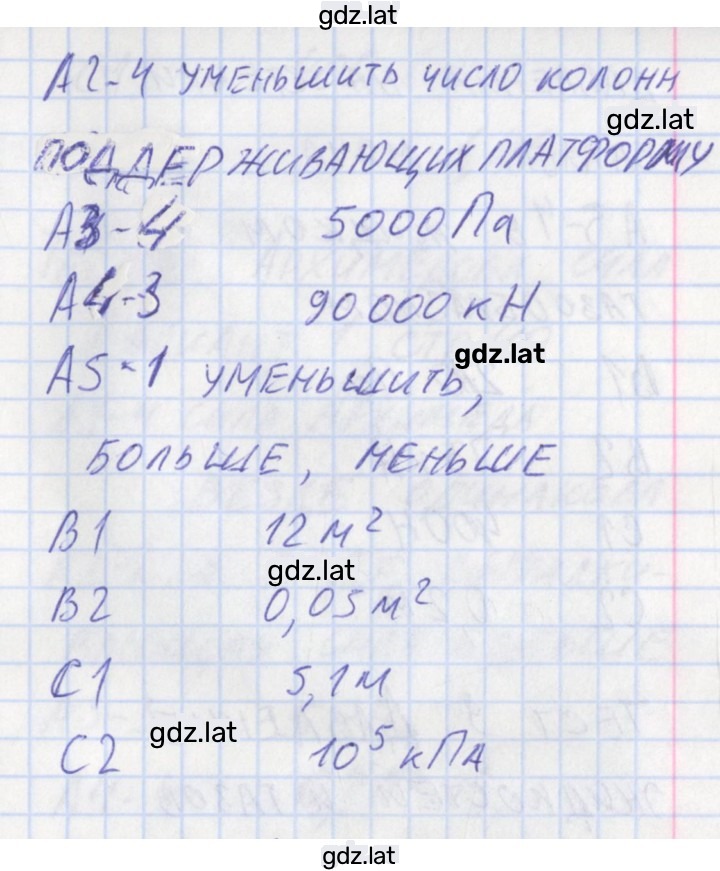 gdz.lat
А2-4 уменьшить число колонн
gdz.lat
поддерживающих платформу
А3-4 5000 Па
А4-3 90 000 кН
gdz.lat
А5-1 уменьшить,
больше, меньше
В1 12 м²
gdz.lat
В2 0,05 м²
С1 5,1 м
gdz.lat
С2 10⁵ кПа
gdz.lat